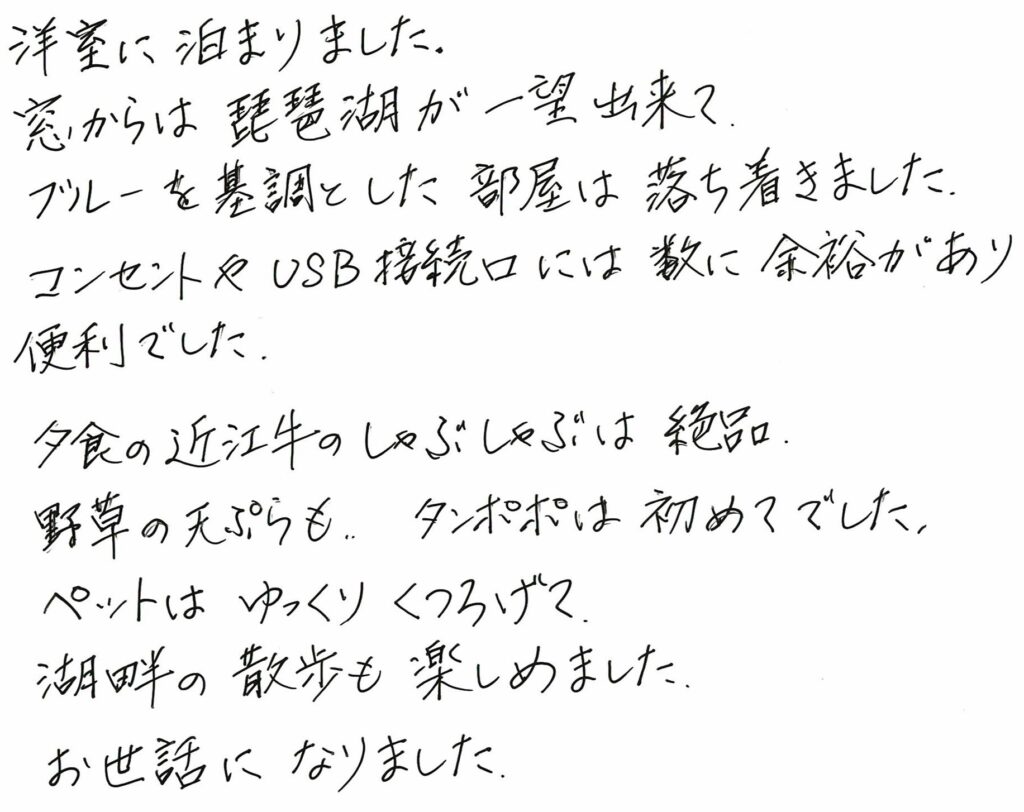 洋室に泊まりました.
窓からは琵琶湖が一望出来て.
ブルーを基調とした部屋は落ち着きました.
コンセントやUSB接続口には数に余裕があり
便利でした.
夕食の近江牛のしゃぶしゃぶは絶品.
野草の天ぷらも.. タンポポは初めてでした.
ペットはゆっくりくつろげて.
湖畔の散歩も楽しめました.
お世話になりました.